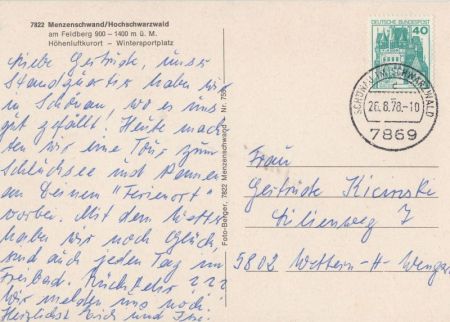 7822 Menzenschwand/Hochschwarzwald
am Feldberg 900 – 1400 m ü. M.
Höhenluftkurort – Wintersportplatz
Liebe Gertrück, unser
Standquartier haben wir
in Schönau, wo es uns
gut gefällt! Heute mach-
ten wir eine Tour zum
Schluchsee und kamen
an Deinem "Ferienort"
vorbei. Mit dem Wetter
haben wir noch Glück,
sind auch jeden Tag im
Freibad. Rückkehr ???
Wir melden uns noch!
Herzlichst
Foto-Berger, 7822 Menzenschwand – Nr.
DEUTSCHE BUNDESPOST
40
SCHWARZWALD
26.8.78.-10
7869
Frau
Lilienweg 7
5802 Wetter-4-Wengern